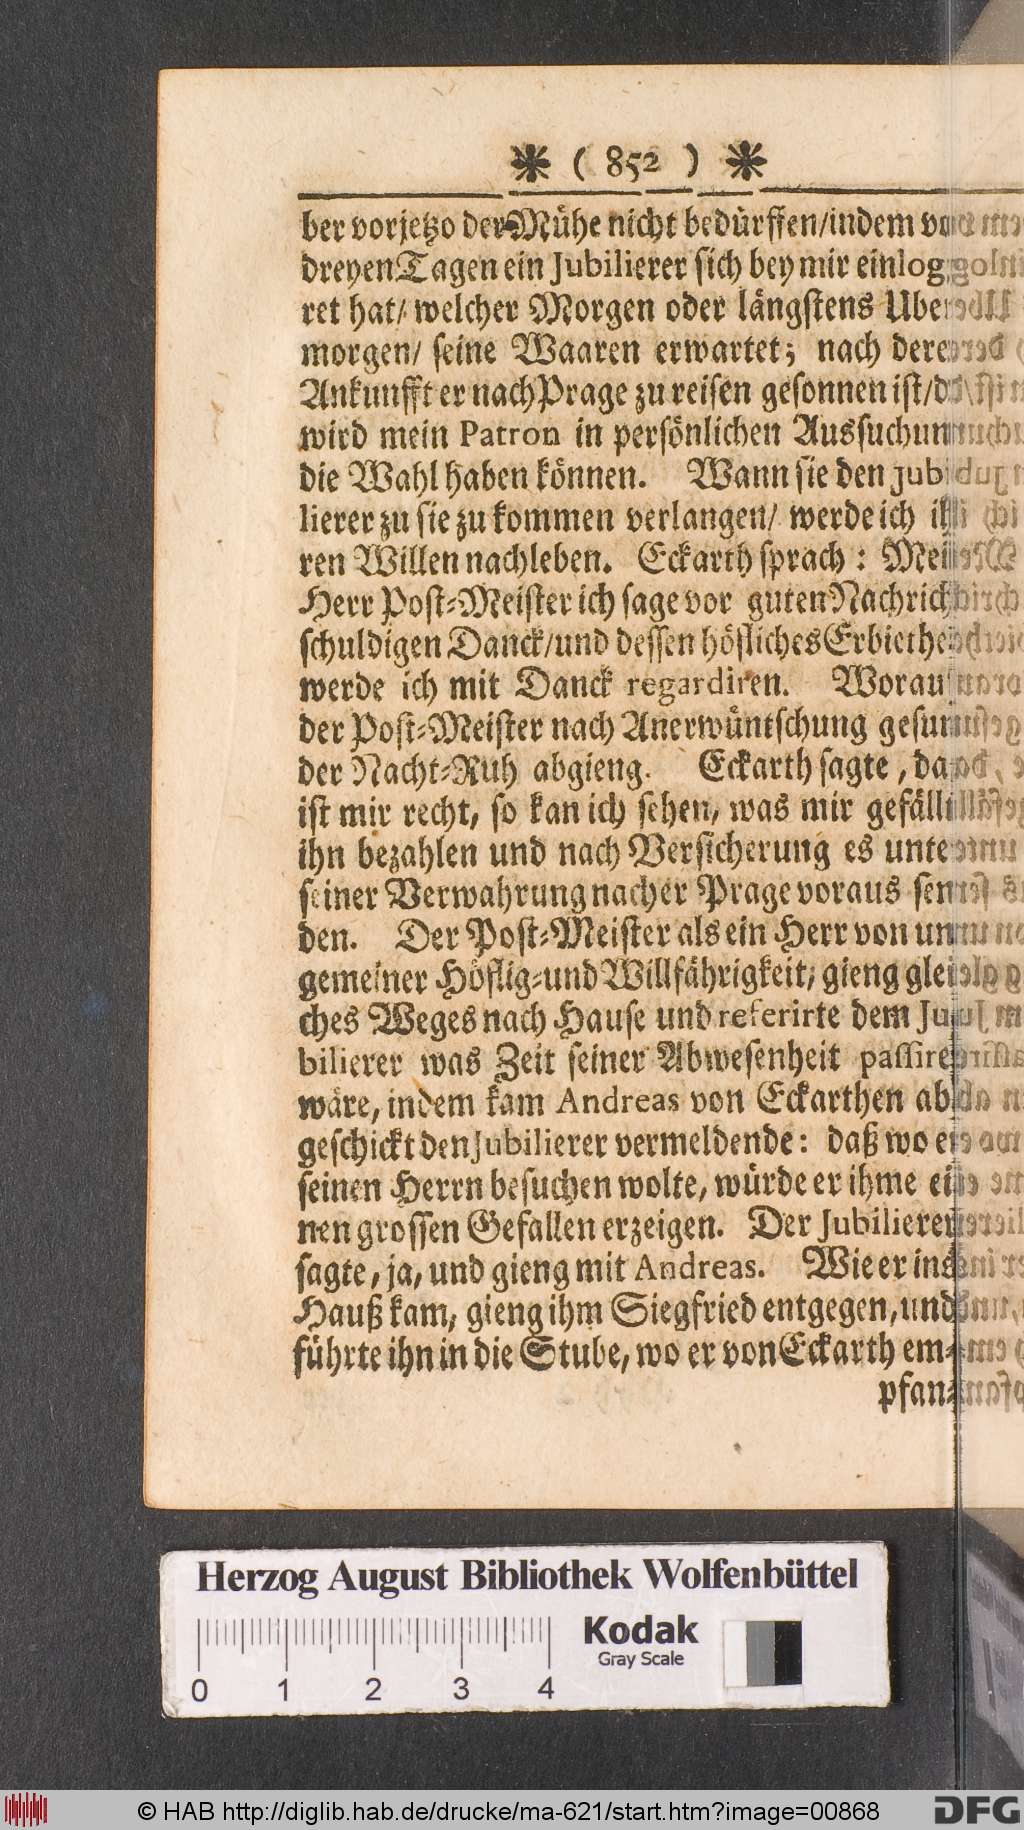 * ( 852 ) *
ber vorjetzo der Mühe nicht bedürffen/indem vor
dreyen Tagen ein Jubilierer sich bey mir einlog
ret hat/ welcher Morgen oder längstens Uber
morgen/ seine Waaren erwartet; nach dere
Ankunfft er nach Prage zu reisen gesonnen ist/da
wird mein Patron in persönlichen Aussuchun
die Wahl haben können. Wann sie den Jubi
lierer zu sie zu kommen verlangen/ werde ich ih
ren Willen nachleben. Eckarth sprach: Mein
Herr Post-Meister ich sage vor guten Nachrich
schuldigen Danck/und dessen höfliches Erbiethen
werde ich mit Danck regardiren. Worauf
der Post-Meister nach Anerwüntschung gesun
der Nacht-Ruh abgieng. Eckarth sagte, da
ist mir recht, so kan ich sehen, was mir gefällt
ihn bezahlen und nach Versicherung es unter
seiner Verwahrung nacher Prage voraus sen
den. Der Post-Meister als ein Herr von un
gemeiner Höflig-und Willfährigkeit, gieng glei
ches Weges nach Hause und referirte dem Ju
bilierer was Zeit seiner Abwesenheit passiret
wäre, indem kam Andreas von Eckarthen ab
geschickt den Jubilierer vermeldende: daß wo er
seinen Herrn besuchen wolte, würde er ihme ei
nen grossen Gefallen erzeigen. Der Jubilierer
sagte, ja, und gieng mit Andreas. Wie er ins
Hauß kam, gieng ihm Siegfried entgegen, und
führte ihn in die Stube, wo er von Eckarth em-
pfan-
Herzog August Bibliothek Wolfenbüttel
Kodak
Gray Scale
0 1 2 3 4
© HAB http://diglib.hab.de/drucke/ma-621/start.htm?image=00868
DFG